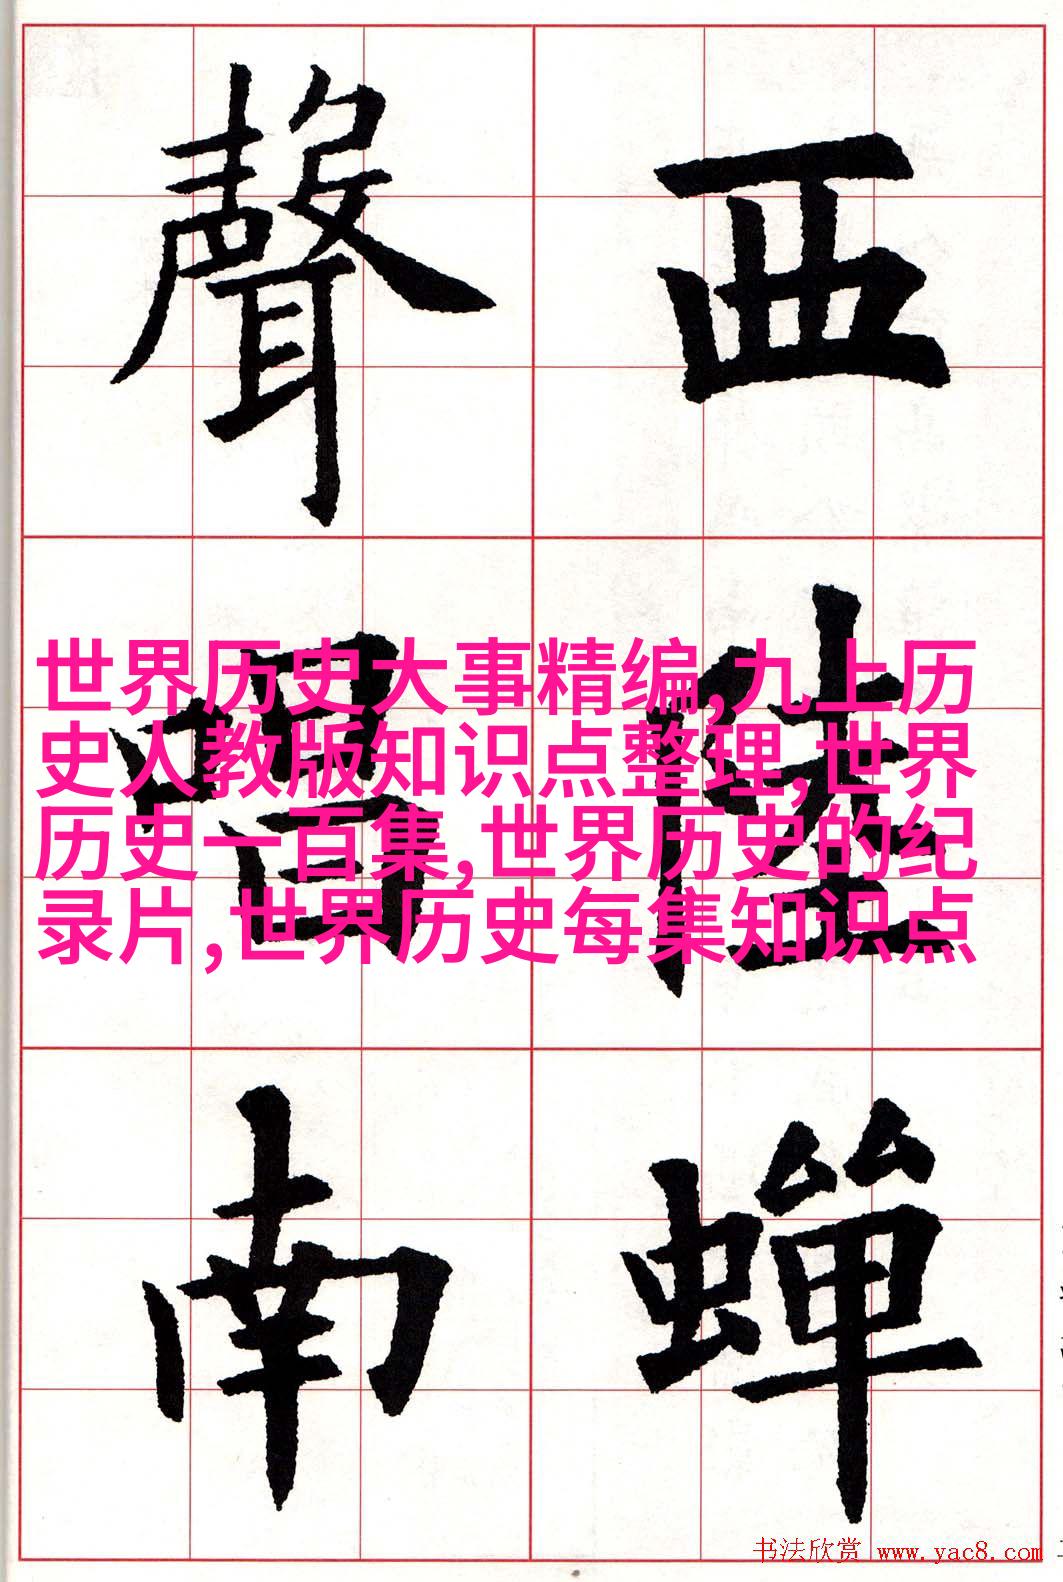 西陸蟬
聲唱南
世界历史大事精编,九上历
史人教版知识点整理,世界
历史一百集,世界历史的纪
录片,世界历史每集知识点
书法欣赏 www.yac8.com